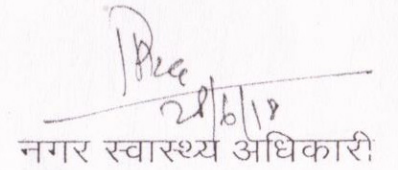 28/6/18
नगर स्वास्थ्य अधिकारी